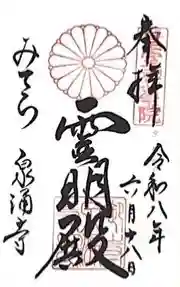 奉拝
令和八年
六月十八日
霊明殿
みてら
泉涌寺